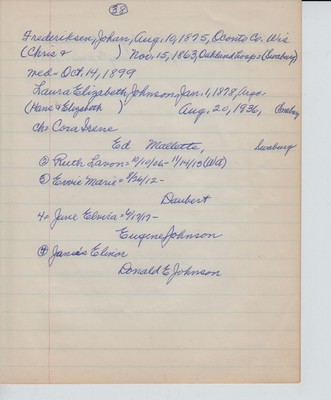 38
Frederiksen, Johan, Aug. 10, 1875, Oconto Co. Wis
(Chris & ) Nov. 15, 1863, Oakland Troop's (Swaburg)
med - Oct. 14, 1899
Laura Elizabeth Johnson, Jan. 1, 1878,
(Hans & Elizabeth ) Aug. 20, 1936,
Ch: Cora Irene
Ed Mallette, Swaburg
③ Ruth Lavon = 10/10/06 - 11/14/13 (Wd)
Ervie Marie = 8/26/12 -
Daubert
4 = June Elvira = 6/17/17 -
Eugene Johnson
④ Janice Elinor
Donald E Johnson